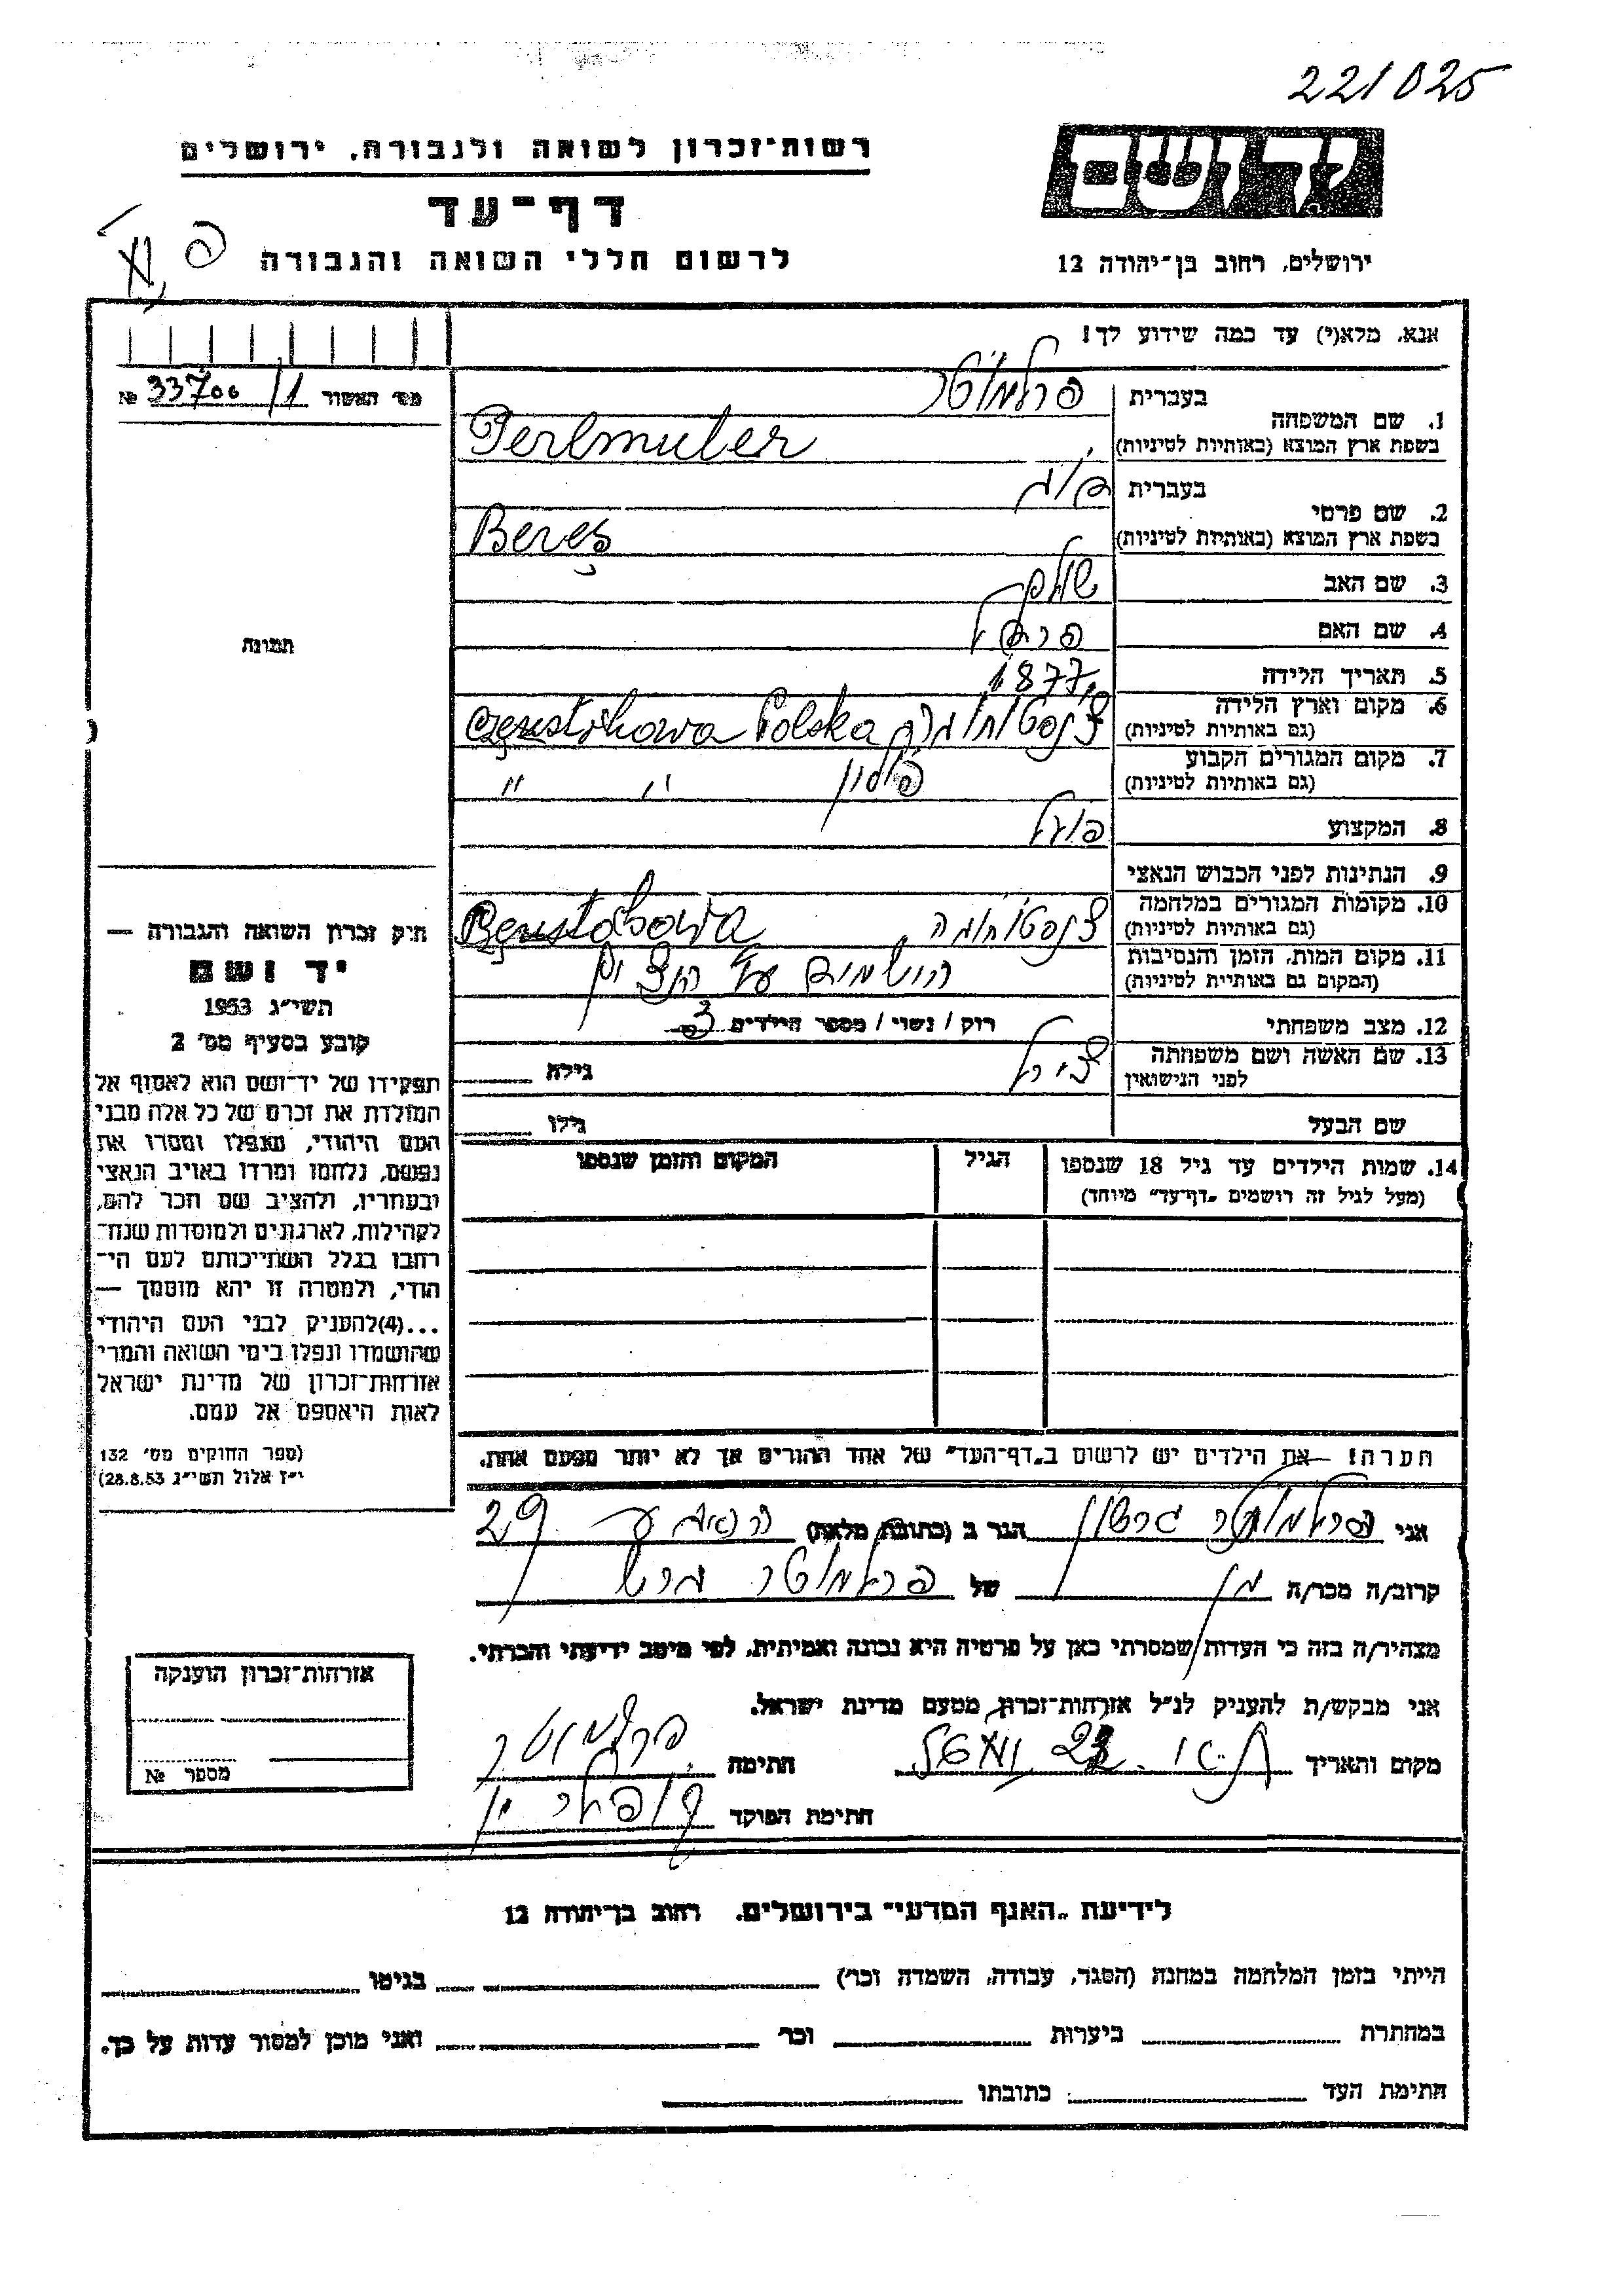 221025
רשות־זכרון לשואה ולגבורה, ירושלים
דף־עד
לרשום חללי השואה והגבורה
ירושלים, רחוב בן־יהודה 12
אנא, מלא(י) עד כמה שידוע לך!
מס׳ האשור 33700/1 №
תמונה
1. שם המשפחה
בעברית פרלמוטר
בשפת ארץ המוצא (באותיות לטיניות) Perlmuter
2. שם פרטי
בעברית
בשפת ארץ המוצא (באותיות לטיניות) Bereş
3. שם האב
4. שם האם
5. תאריך הלידה 1877
6. מקום וארץ הלידה
(גם באותיות לטיניות) Polska
7. מקום המגורים הקבוע פולין " "
(גם באותיות לטיניות)
8. המקצוע פועל
9. הנתינות לפני הכבוש הנאצי
10. מקומות המגורים במלחמה
(גם באותיות לטיניות)
11. מקום המות, הזמן והנסיבות
(המקום גם באותיית לטיניות)
12. מצב משפחתי רוק / נשוי / מספר הילדים 3
13. שם האשה ושם משפחתה
לפני הנישואין גילה
שם הבעל גילו
14. שמות הילדים עד גיל 18 שנספו
(מעל לגיל זה רושמים „דף־עד” מיוחד)
הגיל
המקום והזמן שנספו
הערה! את הילדים יש לרשום ב„דף־העד” של אחד ההורים אך לא יותר מפעם אחת.
חיק זכרון השואה והגבורה —
יד ושם
תשי״ג 1953
קובע בסעיף מס׳ 2
תפקידו של יד־ושם הוא לאסוף אל
המולדת את זכרם של כל אלה מבני
העם היהודי, שנפלו ומסרו את
נפשם, נלחמו ומרדו באויב הנאצי
ובעוזריו, ולהציב שם וזכר להם,
לקהילות, לארגונים ולמוסדות שנח־
רבו בגלל השתייכותם לעם הי־
הודי, ולמטרה זו יהא מוסמך —
...(4)להעניק לבני העם היהודי
שהושמדו ונפלו בימי השואה והמרי
אזרחות־זכרון של מדינת ישראל
לאות היאספם אל עמם.
(ספר החוקים מס׳ 132
י״ז אלול תשי״ג 28.8.53)
אני פרלמוטר גרשון הגר ב (כתובת מלאה) 29
קרוב/ה מכר/ה של פרלמוטר
מצהיר/ה בזה כי העדות שמסרתי כאן על פרטיה היא נכונה ואמיתית, לפי מיטב ידיעתי והכרתי.
אני מבקש/ת להעניק לנ״ל אזרחות־זכרון מטעם מדינת ישראל.
מקום ותאריך
חתימה פרלמוטר
חתימת הפוקד
אזרחות־זכרון הוענקה
מספר №
לידיעת „האגף המדעי” בירושלים, רחוב בן־יהודה 12
הייתי בזמן המלחמה במחנה (הסגר, עבודה, השמדה וכר׳) בגיטו
במחתרת ביערות וכר ואני מוכן למסור עדות על כך.
חתימת העד כתובתו